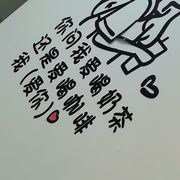 你问我爱喝奶茶
还是爱喝咖啡
我(爱你)